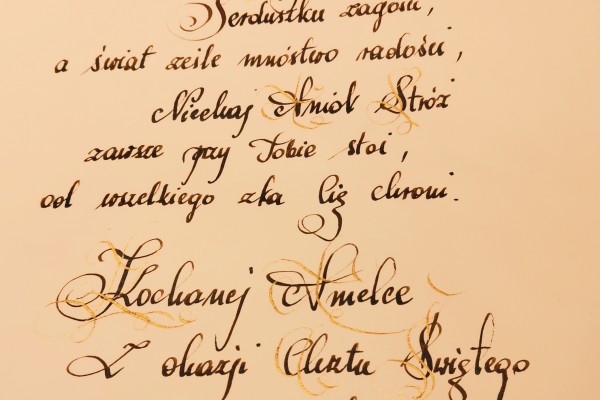 Serduszku zagości,
a świat ześle mnóstwo radości,
Niechaj Anioł Stróż
zawsze przy Tobie stoi,
od wszelkiego zła Cię chroni.
Kochanej Amelce
Z okazji Chrztu Świętego